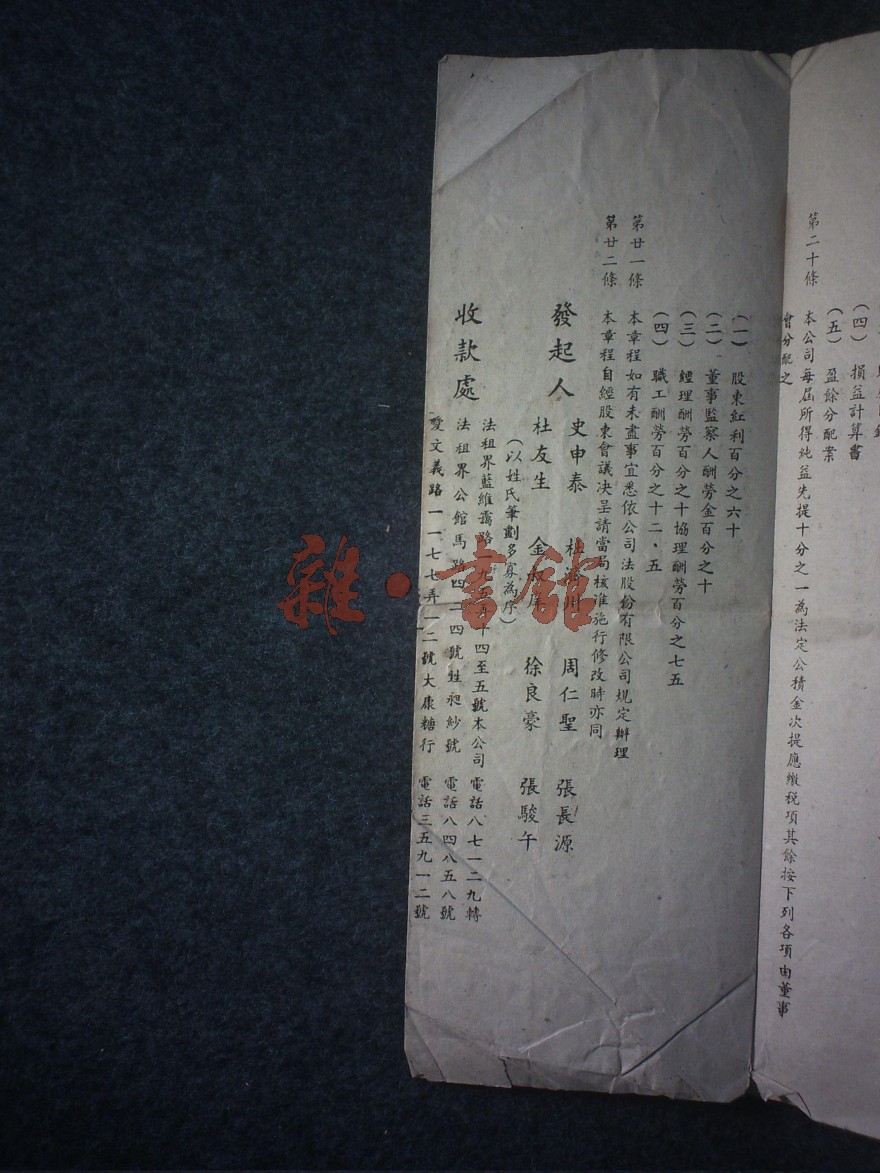 (四) 損益計算書
(五) 盈餘分配案
第二十條 本公司每屆所得純益先提十分之一為法定公積金次提應繳稅項其餘按下列各項由董事
會分配之
(一) 股東紅利百分之六十
(二) 董事監察人酬勞金百分之十
(三) 經理酬勞百分之十協理酬勞百分之七五
(四) 職工酬勞百分之十二·五
第廿一條 本章程如有未盡事宜悉依公司法股份有限公司規定辦理
第廿二條 本章程自經股東會議决呈請當局核准施行修改時亦同
發起人 史申泰 杜 周仁聖 張長源
杜友生 金 徐良豪 張駿午
(以姓氏筆劃多寡為序)
收款處 法租界藍維藹路 四至五號本公司 電話八七一二九轉
法租界公館馬路四二四號 紗號 電話八四八五八號
愛文義路一一七七弄一二號大康糖行 電話三五九一二號
雜·書館